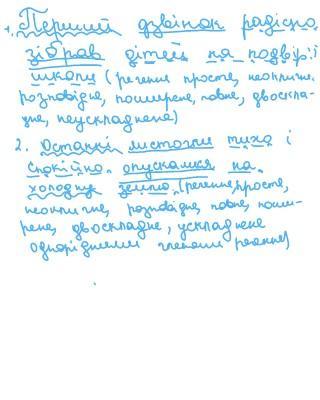 1. Перший дзвінок радісно
зібрав дітей на подвір'ї
школи (речення просте, неоклична,
розповідне, поширене, повне, двоскла-
дне, неускладнене)
2. Останні листочки тихо і
спокійно опускалися на
холодну землю (речення просте,
неокличне, розповідне, повне, поши-
рене, двоскладне, ускладнене
однорідними членами речення)